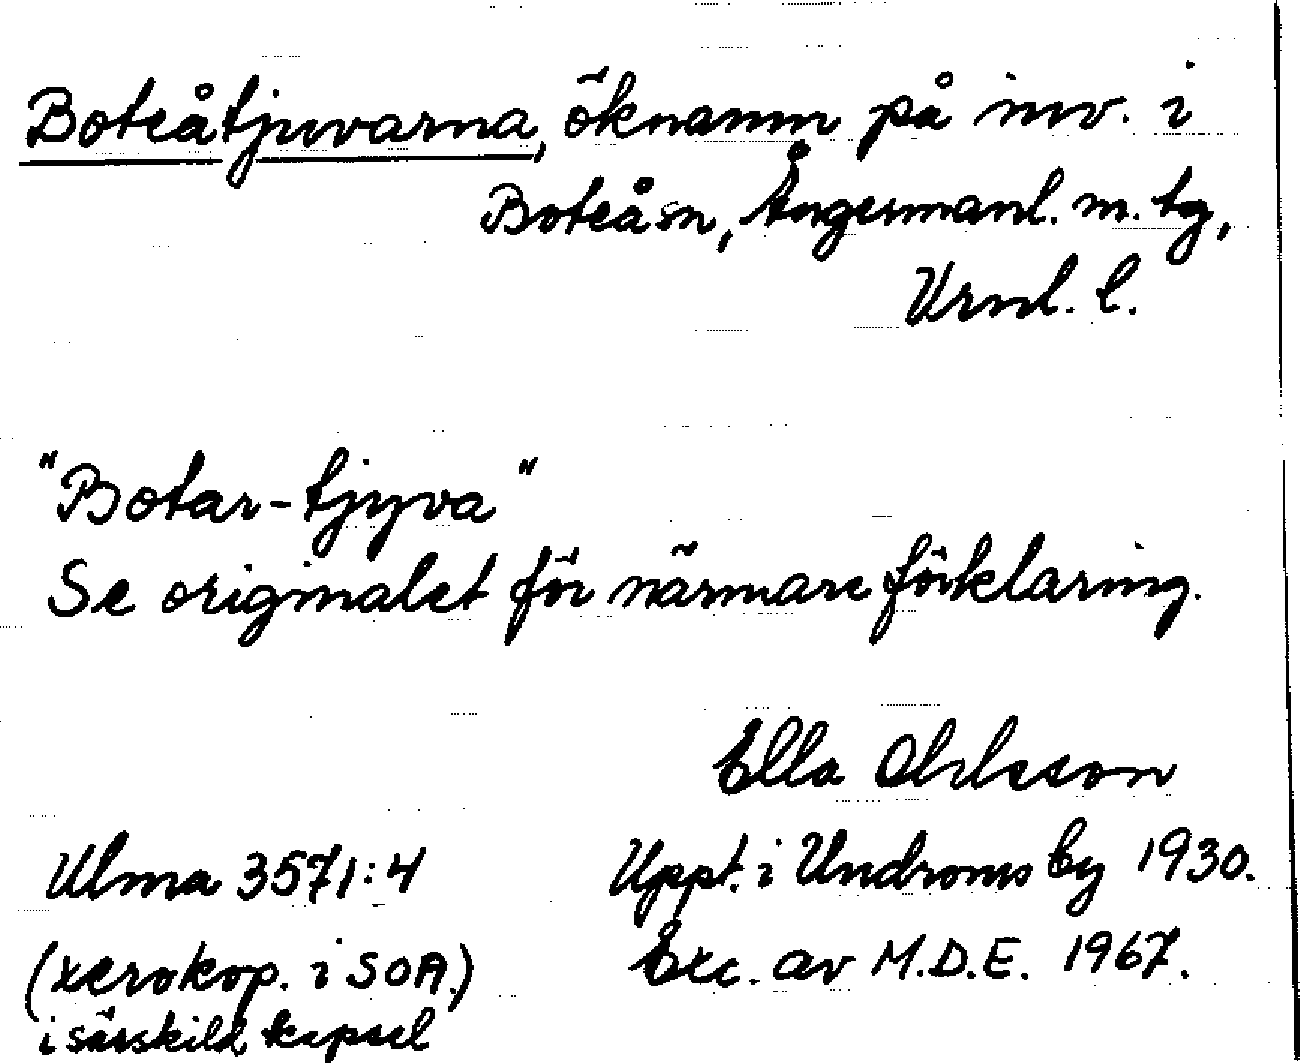 Boteåtjuvarna, öknamn på inv. i
Boteå sn, Ångermanl. m. tg,
Vrnl. l.
"Botar-tjyva"
Se originalet för närmare förklaring.
Ella Ohlsson
Ulma 3571:4
Uppt. i Undroms by 1930.
(xerokop. i SOA.)
Exc. av M.D.E. 1967.
i särskild kapsel